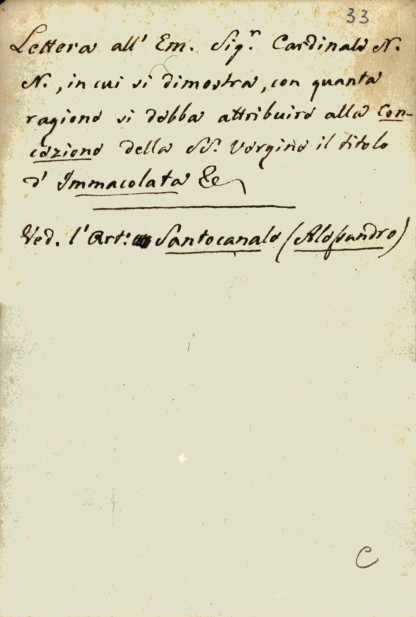 33
Lettera all' Em. Sig.r Cardinale N.
N., in cui si dimostra, con quanta
ragione si debba attribuire alla Con-
cezione della SS. Vergine il titolo
d' Immacolata &c
Ved. l'Art.o Santocanale (Alessandro)
C